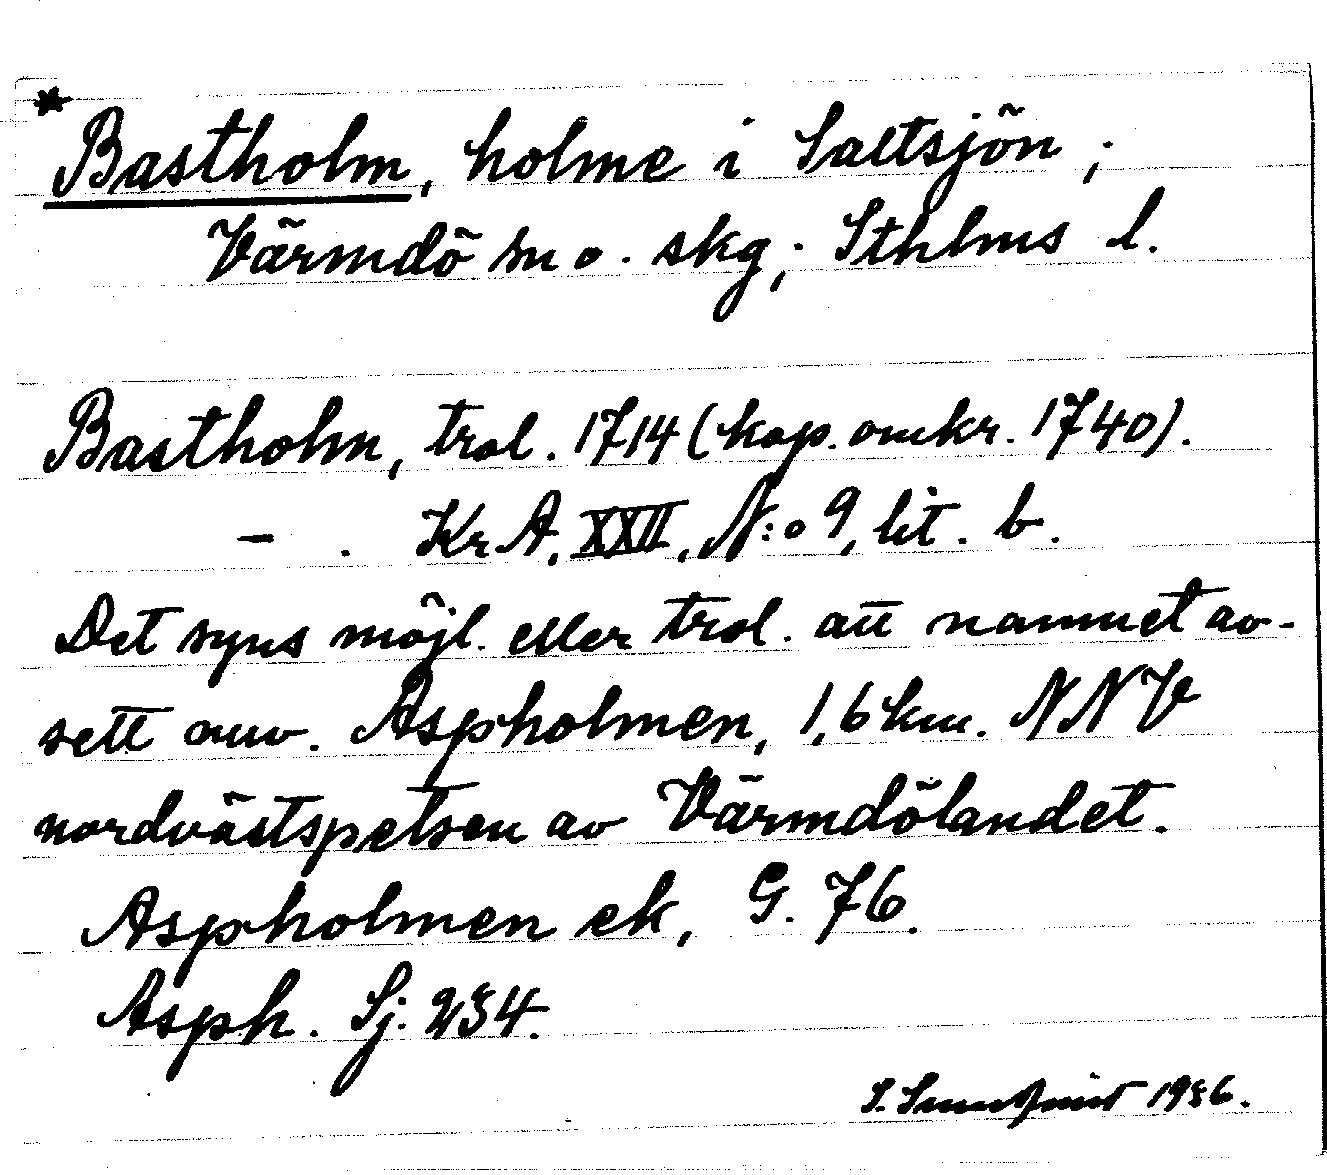 * Bastholm, holme i Saltsjön;
Värmdö sn o. skg; Sthlms l.
Bastholm, trol. 1714 (kop. omkr. 1740).
– . KrA, XXII, N:o 9, lit. b.
Det syns möjl. eller trol. att namnet av-
sett nuv. Aspholmen, 1,6 km. NNV
nordvästspetsen av Värmdölandet.
Aspholmen ek, G. 76.
Asph. Sj. 234.
S.